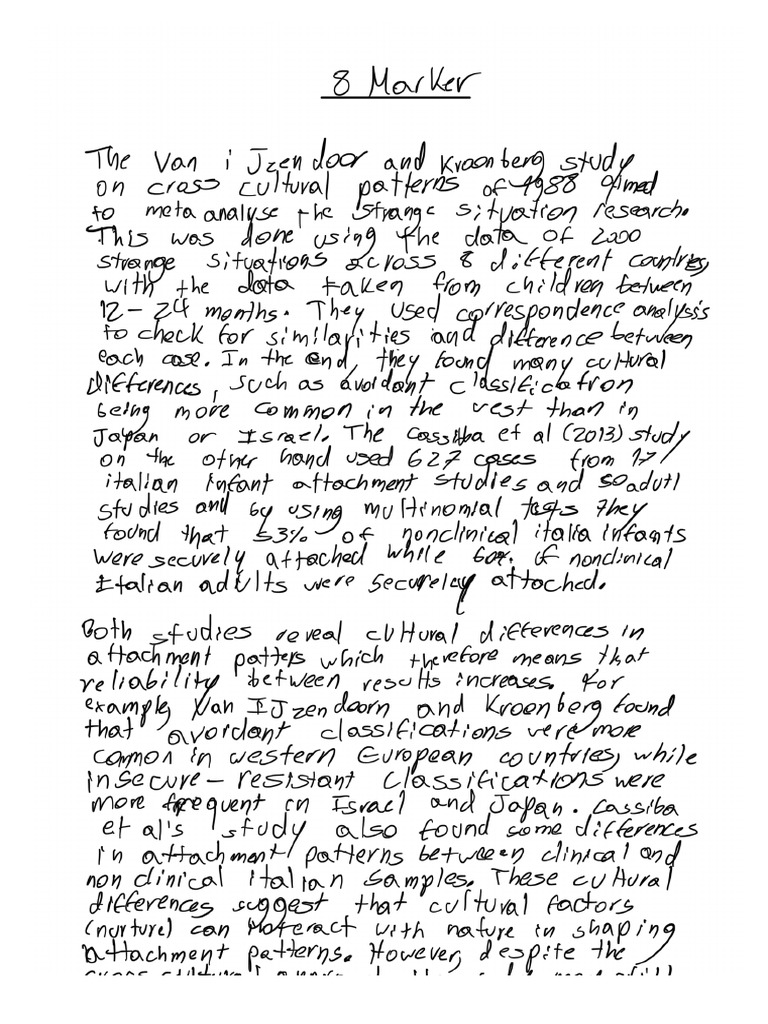 8 Marker
The Van i Jzendoor and Kroonberg study
on cross cultural patterns of 1988 aimed
to meta analyse the strange situation research.
This was done using the data of 2000
strange situations across 8 different countries,
with the data taken from children between
12-24 months. They used correspondence analysis
to check for similarities and difference between
each case. In the end, they found many cultural
Differences, such as avoidant classification
being more common in the vest than in
Japan or Israel. The Cassiba et al (2013) study
on the other hand used 627 cases from 17
italian infant attachment studies and 50 adult
studies and by using multinomial tests they
found that 53% of nonclinical italia infants
were securely attached while 60% of nonclinical
Italian adults were securelay attached.
Both studies reveal cultural differences in
attachment patters which therefore means that
reliability between results increases. For
example, Van IJzendoorn and Kroonberg found
that avoidant classifications were more
common in western European countries, while
insecure-resistant classifications were
more frequent in Israel and Japan. Cassiba
et al's study also found some differences
in attachment patterns between clinical and
non clinical italian samples. These cultural
differences suggest that cultural factors
(nurture) can interact with nature in shaping
attachment patterns. However, despite the